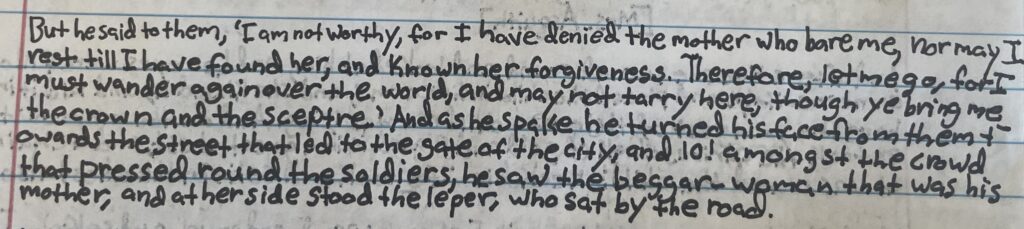 But he said to them, 'I am not worthy, for I have denied the mother who bare me, nor may I
rest till I have found her, and known her forgiveness. Therefore, let me go, for I
must wander again over the world, and may not tarry here, though ye bring me
the crown and the sceptre.' And as he spake he turned his face from them t
owards the street that led to the gate of the city, and lo! amongst the crowd
that pressed round the soldiers, he saw the beggar-woman that was his
mother, and at her side stood the leper, who sat by the road.